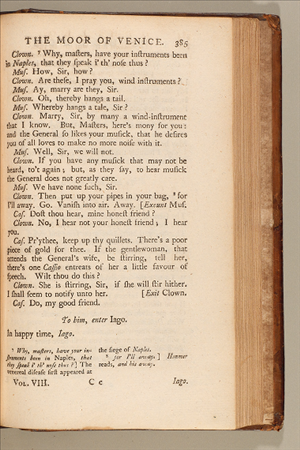 THE MOOR OF VENICE. 385
Clown. ⁷ Why, masters, have your instruments been
in Naples, that they speak i' th' nose thus ?
Mus. How, Sir, how ?
Clown. Are these, I pray you, wind instruments ?
Mus. Ay, marry are they, Sir.
Clown. Oh, thereby hangs a tail.
Mus. Whereby hangs a tale, Sir ?
Clown. Marry, Sir, by many a wind-instrument
that I know. But, Masters, here's mony for you:
and the General so likes your musick, that he desires
you of all loves to make no more noise with it.
Mus. Well, Sir, we will not.
Clown. If you have any musick that may not be
heard, to't again ; but, as they say, to hear musick
the General does not greatly care.
Mus. We have none such, Sir.
Clown. Then put up your pipes in your bag, ⁸ for
I'll away. Go. Vanish into air. Away. [Exeunt Mus.
Cas. Dost thou hear, mine honest friend ?
Clown. No, I hear not your honest friend ; I hear
you.
Cas. Pr'ythee, keep up thy quillets. There's a poor
piece of gold for thee. If the gentlewoman, that
attends the General's wife, be stirring, tell her,
there's one Cassio entreats of her a little favour of
speech. Wilt thou do this ?
Clown. She is stirring, Sir, if she will stir hither.
I shall seem to notify unto her. [Exit Clown.
Cas. Do, my good friend.
To him, enter Iago.
In happy time, Iago.
⁷ Why, masters, have your in-
struments been in Naples, that
they speak i' th' nose thus ?] The
venereal disease first appeared at
the siege of Naples.
⁸ for I'll away:] Hanmer
reads, and hie away.
VOL. VIII. C c Iago.